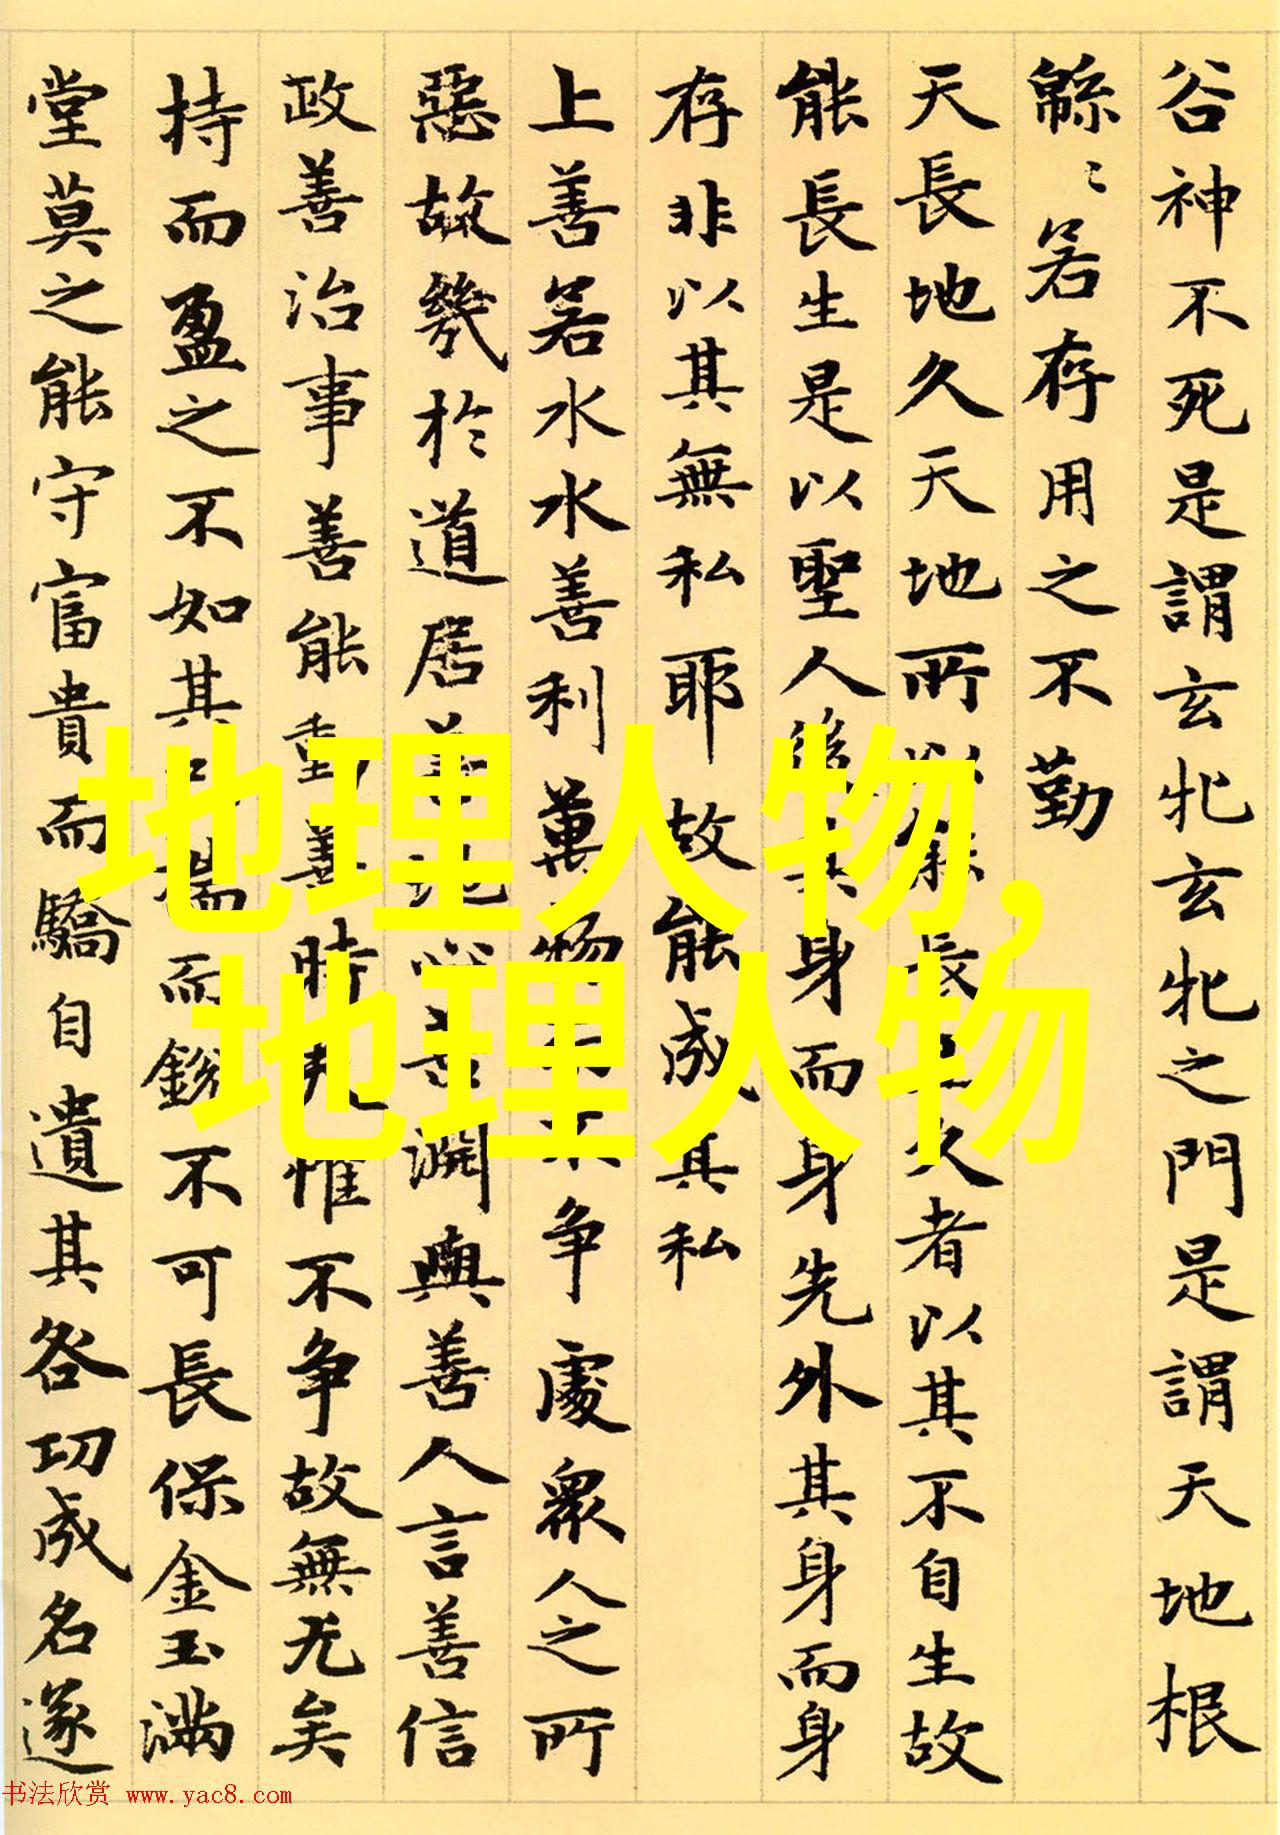 谷神不死是謂玄牝玄牝之門是謂天地根
緜〻若存用之不勤
天長地久天地所以長久者以其不自生故
能長生是以聖人後其身而身先外其身而身
存非以其無私耶故能成其私
上善若水水善利萬物不争處衆人之所
惡故幾於道居善地心善淵與善人言善信
政善治事善能動善時夫惟不争故無尤矣
持而盈之不如其已揣而鋭不可長保金玉滿
堂莫之能守富貴而驕自遺其咎功成名遂
地理人物,
地理人物
书法欣赏 www.yac8.com